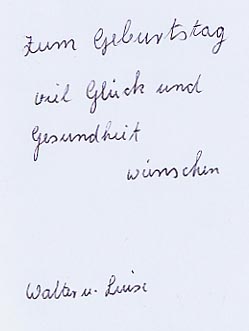 Zum Geburtstag
viel Glück und
Gesundheit
wünschen
Walter u. Luise